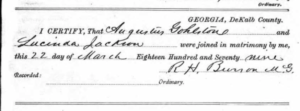 GEORGIA, DeKalb County.
I CERTIFY, That Augustus Gohlstone and
Lucinda Jackson were joined in matrimony by me,
this 22 day of March Eighteen Hundred and Seventy nine
R. H. Burson M.G.
Recorded: Ordinary.
Ordinary.